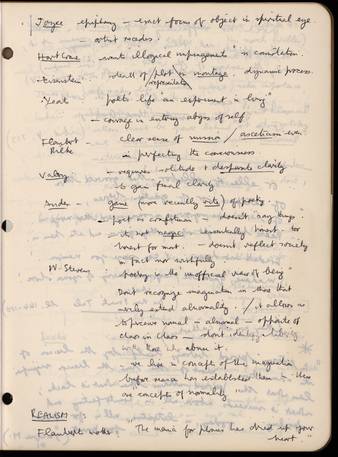 Joyce epiphany – exact focus of object in spiritual eye
– artist recedes.
Hart Crane – wants illogical impingement in
Eisenstein – ideal of plot in montage dynamic process
representation
Yeats – poet's life an experiment in living
– courage in entering abyss of self
Flaubert – clear sense of mission / asceticism even
Rilke in perfecting the consciousness
Valery – requires solitude + desperate clarity
to gain final clarity
Auden – game (more recently rite) of poetry
– poet is – doesn't say things.
– is not magic honest – too
honest for most. – doesn't reflect society
in fact nor wishfully
W. Stevens – poetry is the unofficial view of being
Don't recognize imagination in those that
merely extend abnormality. / it allows us
to perceive normal in abnormal – opposite of
chaos in chaos – don't identify liberty
with those who abuse it.
– we live in concepts of the imagination
before reason has established them – these
are concepts of normality
REALISM
Flaubert's mother The mania for phrases has dried up your
heart